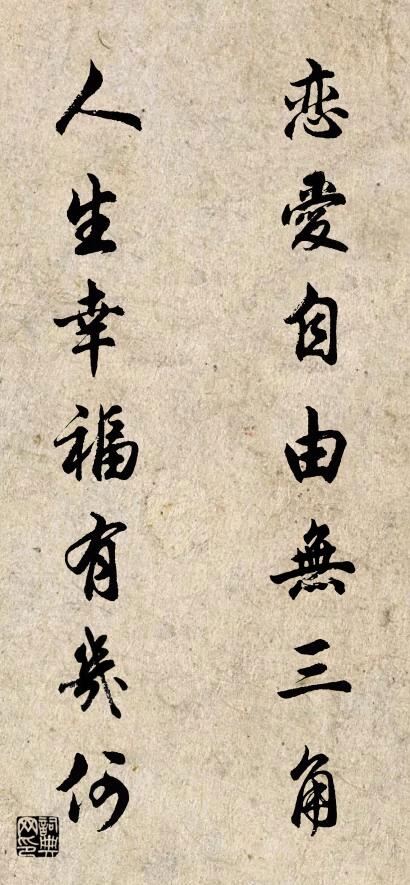 恋愛自由無三角
人生幸福有幾何
詞典網印